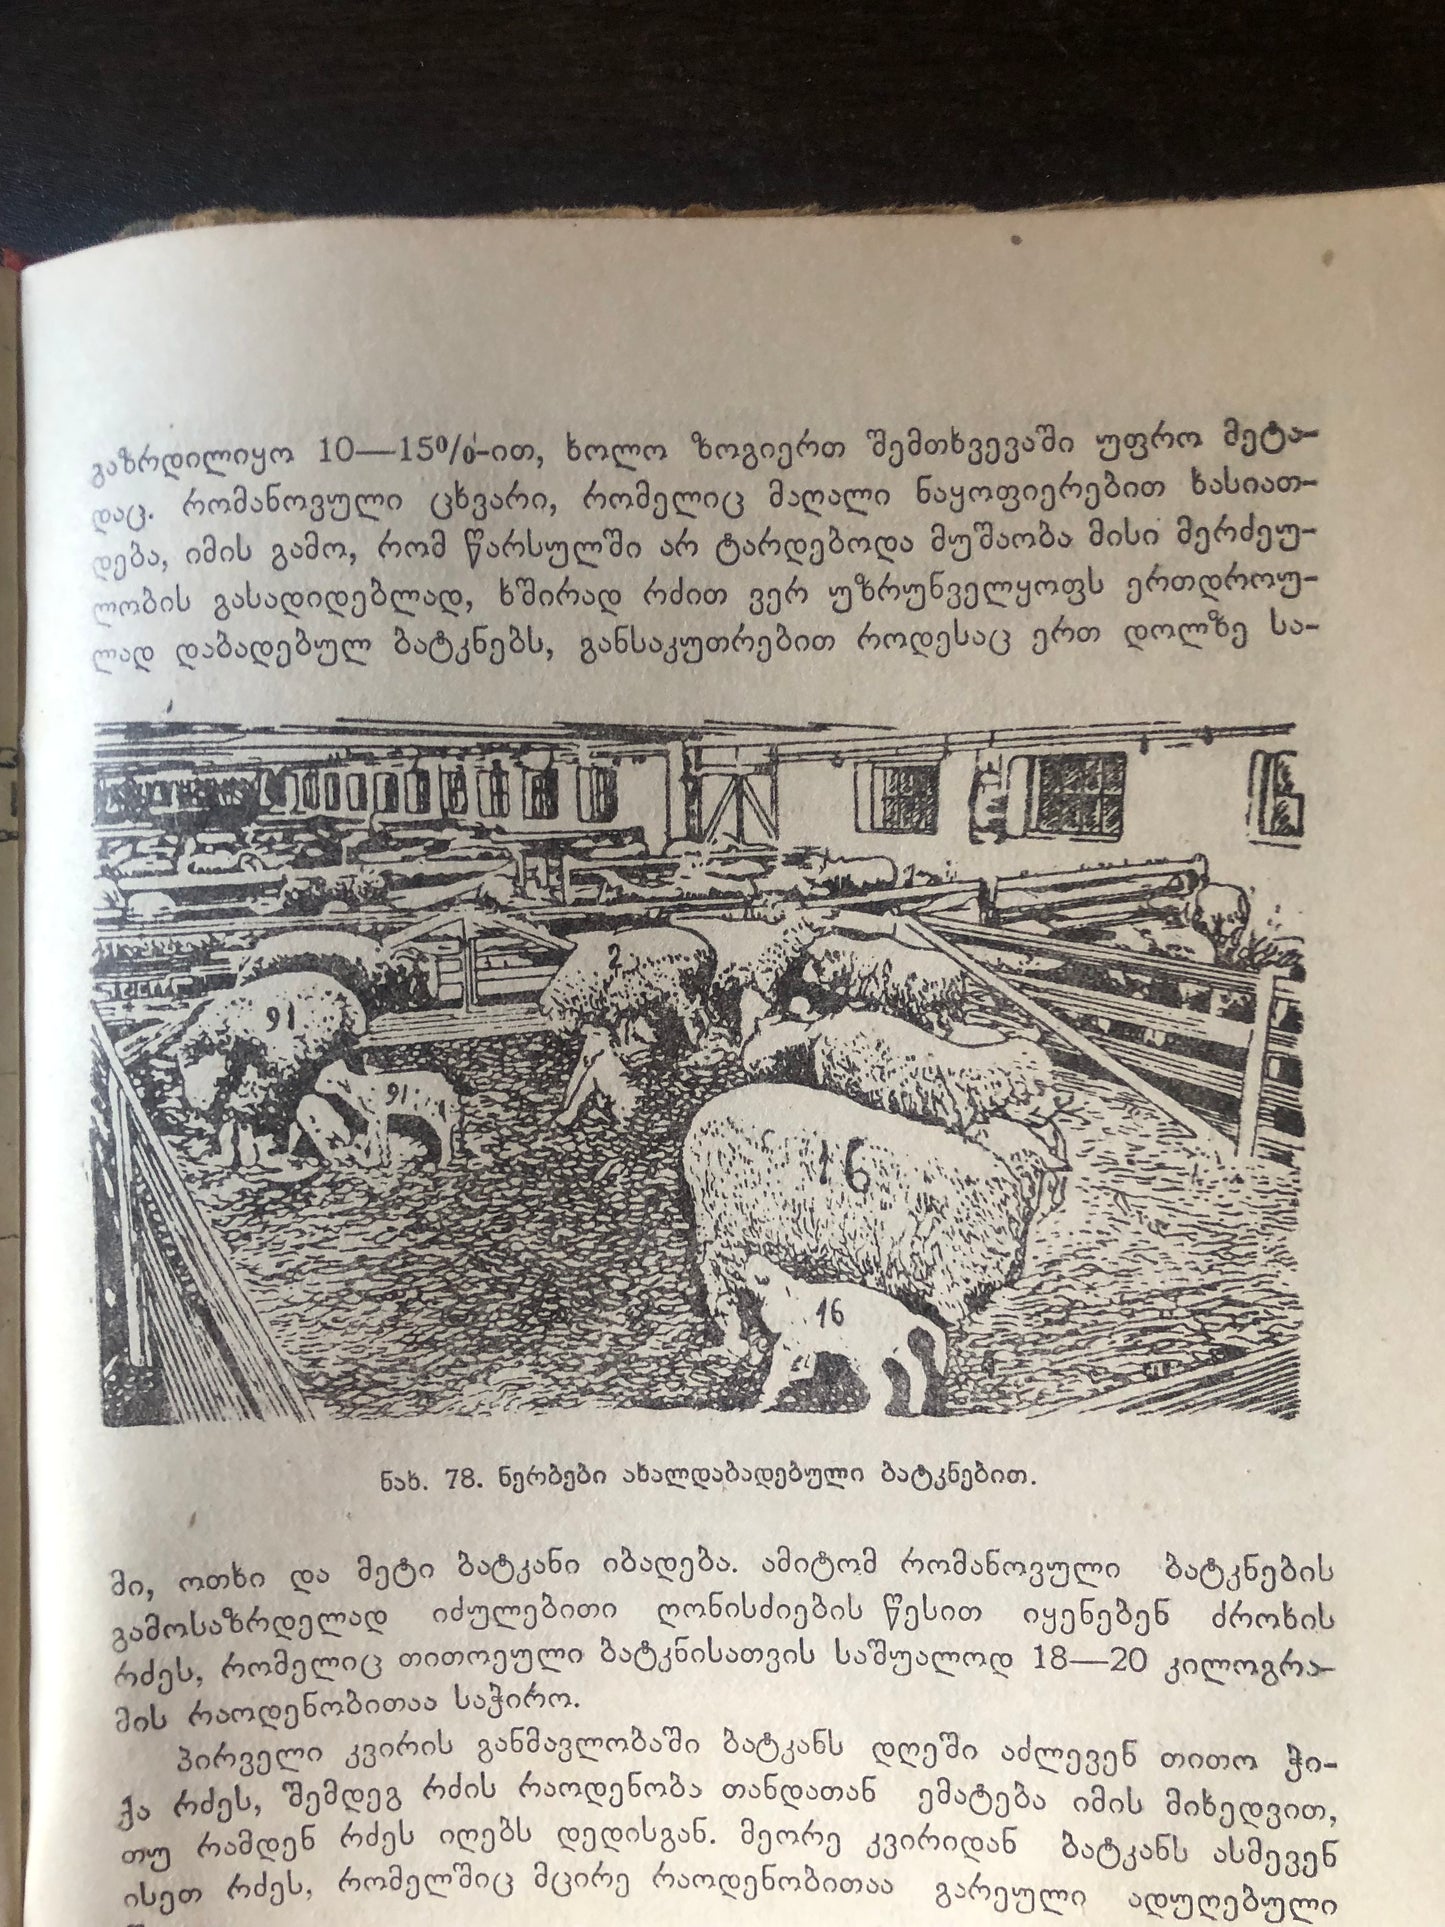 გაზრდილიყო 10—15%-ით, ხოლო ზოგიერთ შემთხვევაში უფრო მეტა-
დაც. რომანოვული ცხვარი, რომელიც მაღალი ნაყოფიერებით ხასიათ-
დება, იმის გამო, რომ წარსულში არ ტარდებოდა მუშაობა მისი მერძეუ-
ლობის გასადიდებლად, ხშირად რძით ვერ უზრუნველყოფს ერთდროუ-
ლად დაბადებულ ბატკნებს, განსაკუთრებით როდესაც ერთ დოლზე სა-
2
91
91
16
16
ნახ. 78. ნერბები ახალდაბადებული ბატკნებით.
მი, ოთხი და მეტი ბატკანი იბადება. ამიტომ რომანოვული ბატკნების
გამოსაზრდელად იძულებითი ღონისძიების წესით იყენებენ ძროხის
რძეს, რომელიც თითოეული ბატკნისათვის საშუალოდ 18—20 კილოგრა-
მის რაოდენობითაა საჭირო.
პირველი კვირის განმავლობაში ბატკანს დღეში აძლევენ თითო ჭი-
ქა რძეს, შემდეგ რძის რაოდენობა თანდათან ემატება იმის მიხედვით,
თუ რამდენ რძეს იღებს დედისგან. მეორე კვირიდან ბატკანს ასმევენ
ისეთ რძეს, რომელშიც მცირე რაოდენობითაა გარეული ადუღებული